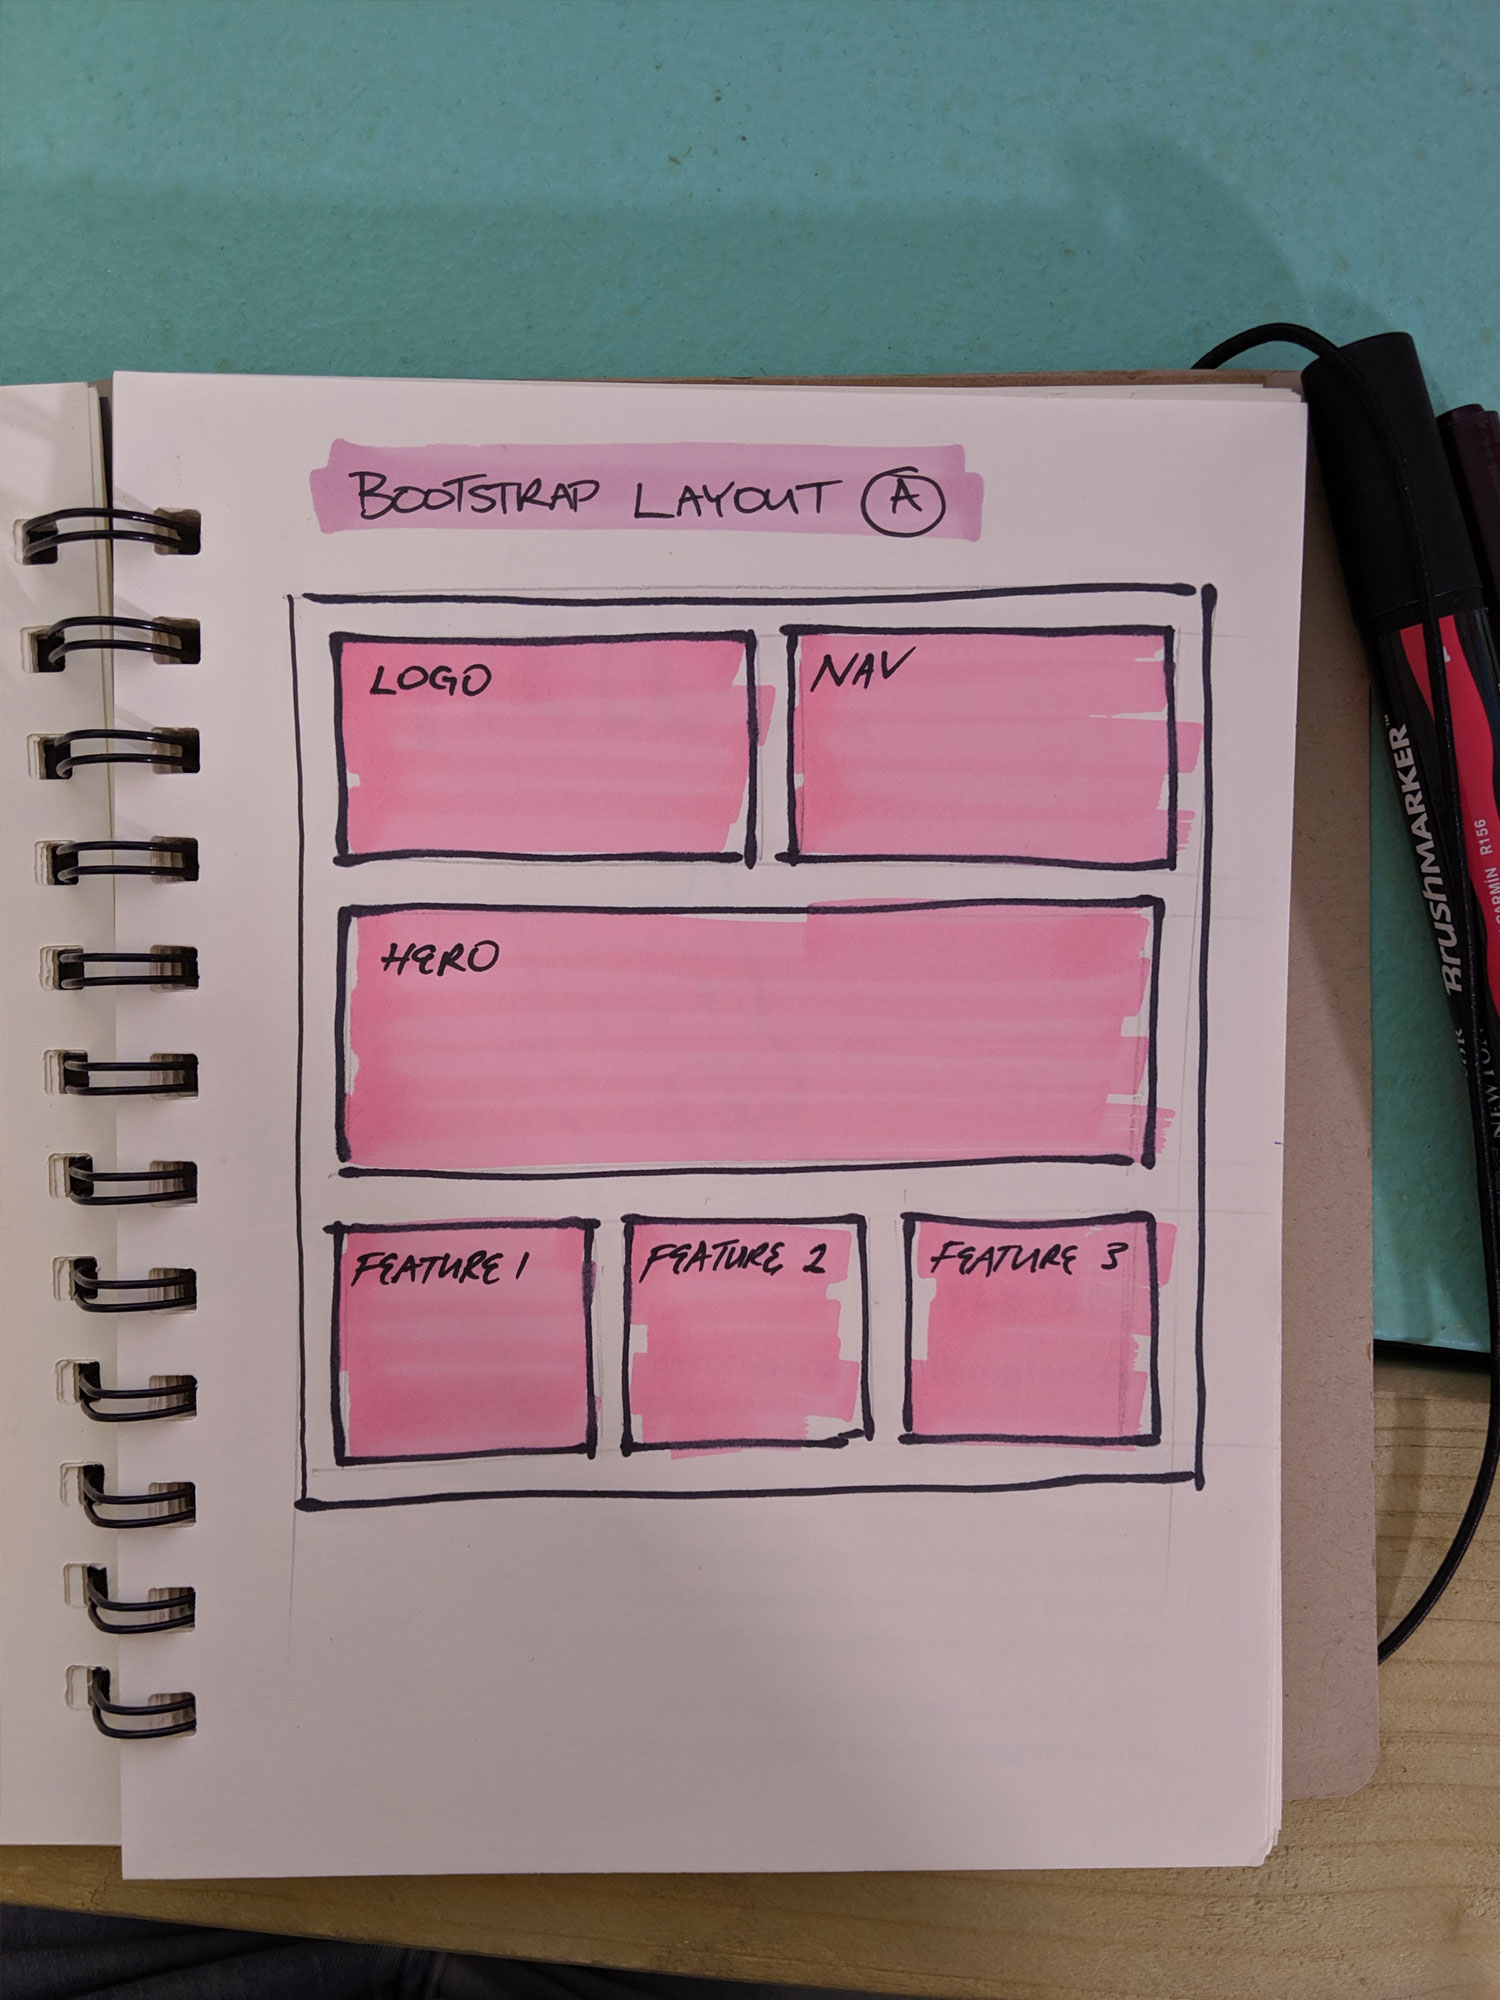 BOOTSTRAP LAYOUT A
LOGO
NAV
HERO
FEATURE 1
FEATURE 2
FEATURE 3
BrushMARKER™
CARMIN R156